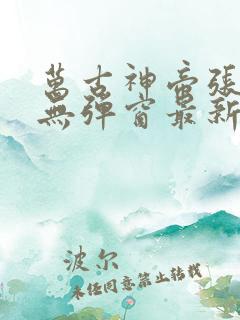 萬古神帝張
無彈窗最新
波尔
未经同意禁止转载